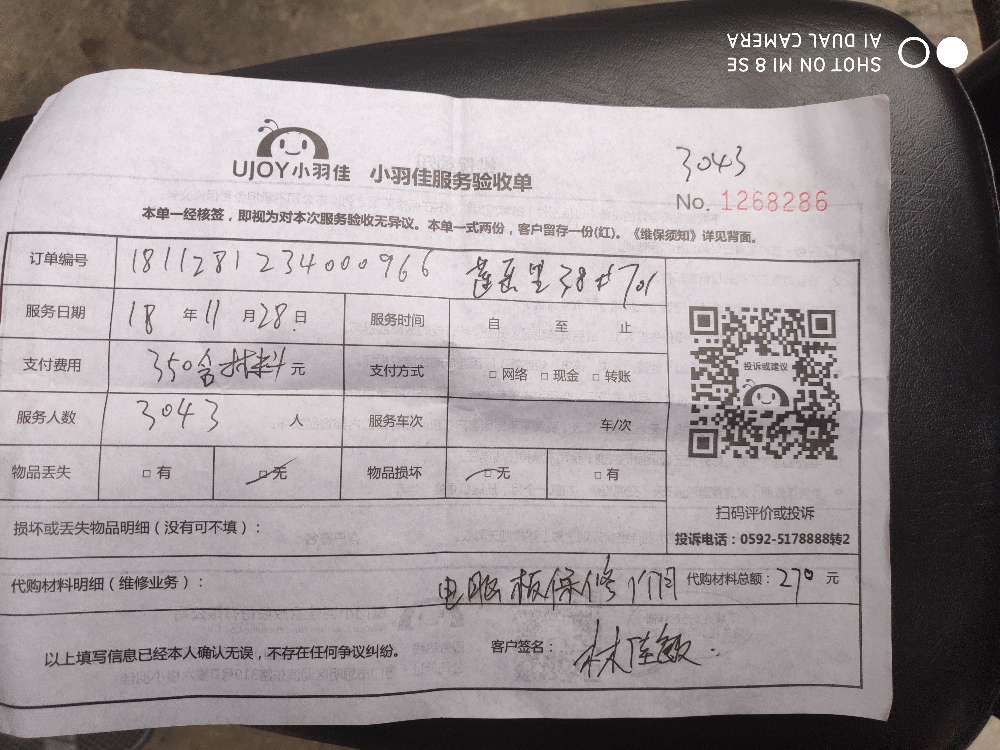 SHOT ON MI 8 SE
AI DUAL CAMERA
UJOY小羽佳 小羽佳服务验收单
3043
No. 1268286
本单一经核签，即视为对本次服务验收无异议。本单一式两份，客户留存一份(红)。《维保须知》详见背面。
订单编号 1811281234000966 莲岳里38#701
服务日期 18 年 11 月 28 日 服务时间 自 至 止
支付费用 350含材料 元 支付方式 □ 网络 □ 现金 □ 转账
服务人数 3043 人 服务车次 车/次
物品丢失 □ 有 □ 无 物品损坏 □ 无 □ 有
投诉或建议
扫码评价或投诉
投诉电话：0592-5178888转2
损坏或丢失物品明细（没有可不填）：
代购材料明细（维修业务）： 电脑板保修 代购材料总额：270 元
以上填写信息已经本人确认无误，不存在任何争议纠纷。 客户签名：